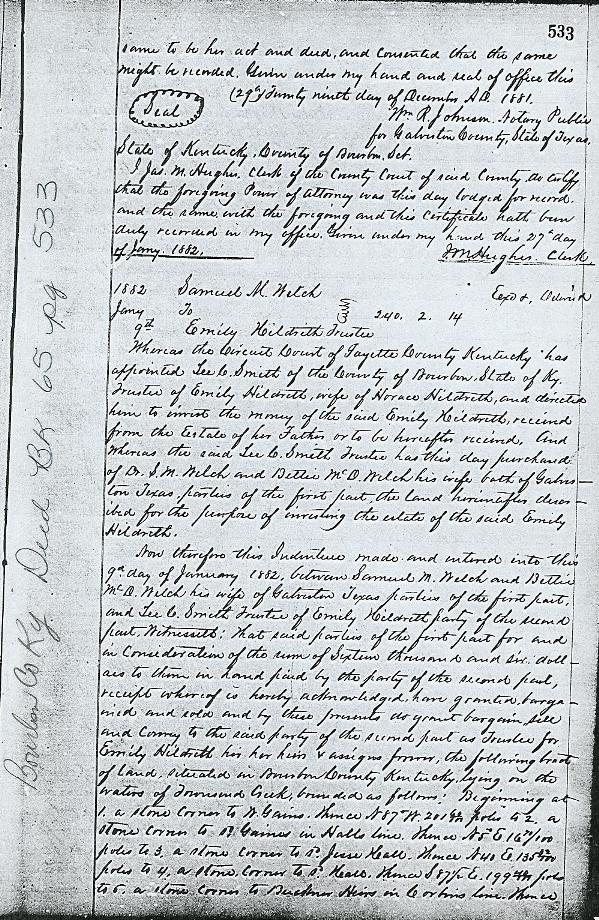 533
same to be her act and deed, and consented that the same
might be recorded. Given under my hand and seal of office this
(29th) Twenty ninth day of December A.D. 1881.
Seal
Wm R. Johnson. Notary Public
for Galveston County, State of Texas.
State of Kentucky, County of Bourbon, Sct.
I Jas. M. Hughes, Clerk of the County Court of said County, do certify
that the foregoing Power of attorney was this day lodged for record
and the same with the foregoing and this Certificate hath been
duly recorded in my office. Given under my hand this 27th day
of Jany. 1882.
J M Hughes. Clerk
1882 Samuel M. Welch
Jany To 240. 2. 14
9th Emily Hildreth Trustee
Whereas the Circuit Court of Fayette County Kentucky has
appointed Lee C. Smith of the County of Bourbon, State of Ky.
Trustee of Emily Hildreth, wife of Horace Hildreth, and directed
him to invest the money of the said Emily Hildreth, received
from the Estate of her Father or to be hereafter received, And
Whereas the said Lee C. Smith Trustee has this day purchased
of Dr. S. M. Welch and Bettie McD. Welch his wife both of Galves-
ton Texas, parties of the first part, the land hereinafter descr-
ibed for the purpose of investing the estate of the said Emily
Hildreth.
Now therefore this Indenture made and entered into this
9th day of January 1882, between Samuel M. Welch and Bettie
McD. Welch his wife of Galveston Texas parties of the first part,
and Lee C. Smith Trustee of Emily Hildreth party of the second
part, Witnesseth: That said parties of the first part for and
in Consideration of the sum of Sixteen thousand and six doll-
ars to them in hand paid by the party of the second part,
receipt whereof is hereby acknowledged, have granted, barga-
ined and sold and by these presents do grant bargain sell
and Convey to the said party of the second part as Trustee for
Emily Hildreth her heirs & assigns forever, the following tract
of land, situated in Bourbon County Kentucky, lying on the
waters of Townsend Creek, bounded as follows: Beginning at
1. a stone corner to W. Gains. thence N 87° W. poles to 2, a
stone corner to Gaines in Halls line. thence N 5° E
poles to 3 a stone corner to Jesse Hall. thence N 40 E
poles to 4, a stone corner to Hall. thence S E. poles
to 5, a stone corner to Buckner Heirs in Corbins line. thence
Bourbon Co Ky Deed BK 65 pg 533